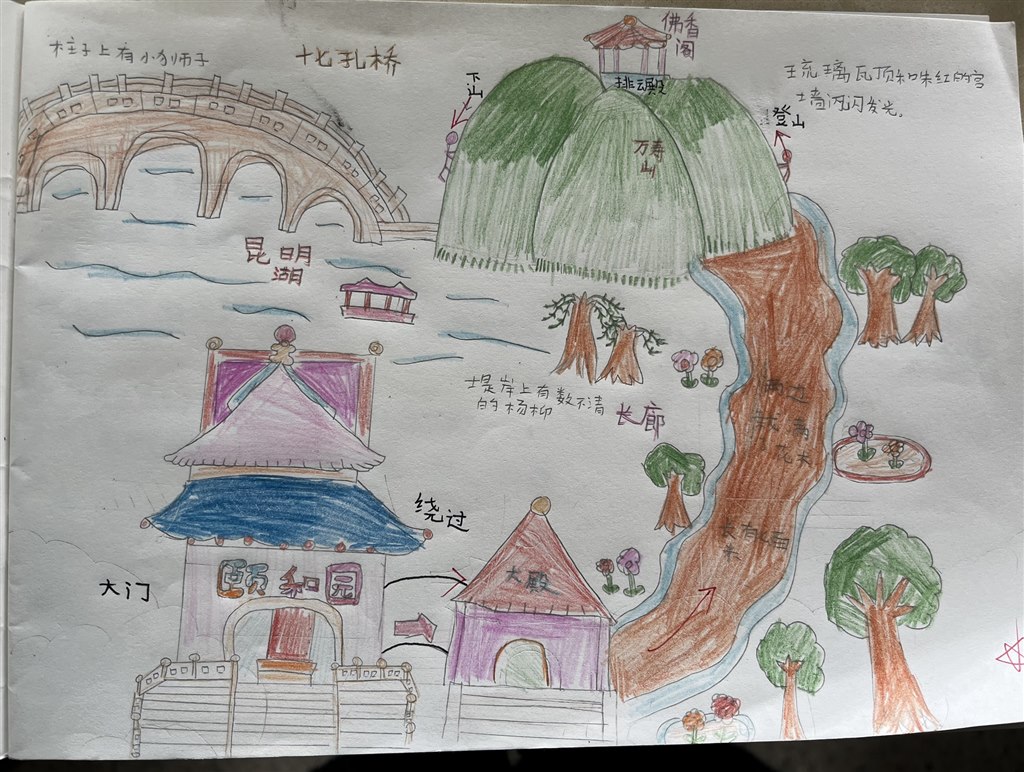 柱子上有小狮子
十七孔桥
下山
佛香阁
排云殿
万寿山
登山
琉璃瓦顶和朱红的宫
墙闪闪发光。
昆明
湖
堤岸上有数不清
的杨柳
长廊
两边
栽满
花木
长有七百
米
绕过
大门
颐和园
大殿